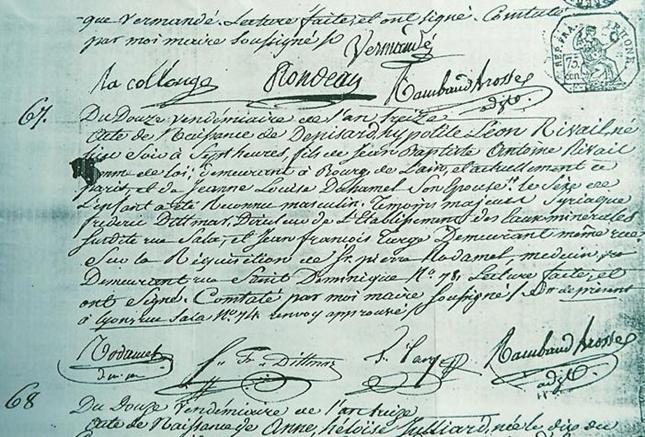 que Vermandé. Lecture faite, et ont signé. Constaté
par moi maire soussigné
Vermandé
la collonge Rondeau Rambaud Brosse
adjt
REP. FRA. RHONE
75 cen.
67. Du Douze Vendémiaire de l'an treize
Acte de Naissance de Denisard hypolite Léon Rivail né
hier soir à Sept heures, fils de Jean Baptiste Antoine Rivail
homme de loi, demeurant à Bourg de l'ain, et actuellement à
Paris, et de Jeanne Louise Duhamel Son épouse, le Sexe de
L'enfant a été Reconnu masculin. Témoins majeurs Syriaque
fréderic Dittmar, Directeur de L'Etablissement des Eaux minérales
susdite rue Sala, et Jean françois Targe Demeurant même rue
Sur la Réquisition de Sr pierre Radamel, médecin
Demeurant rue Saint Dominique No. 78. Lecture faite, et
ont Signé. Constaté par moi maire Soussigné
à Lyon rue Sala No. 74 renvoy approuvé
Radamel F. Dittmar Targe Rambaud Brosse
adjt
68 Du Douze Vendémiaire de l'an treize
Acte de Naissance de Anne, héloïse Julliard, née le dix du